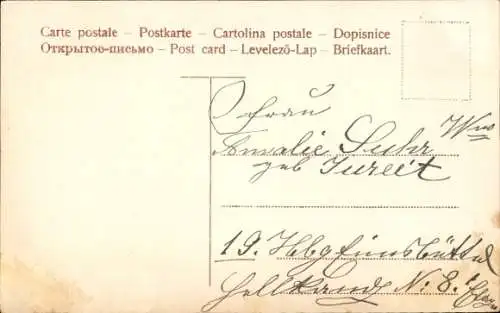 Carte postale – Postkarte – Cartolina postale – Dopisnice
Открытое-письмо – Post card – Levelező-Lap – Briefkaart.
Frau
Amalie Suhr Wwe
geb
19. Hbg Eimsbüttel
N. 8.